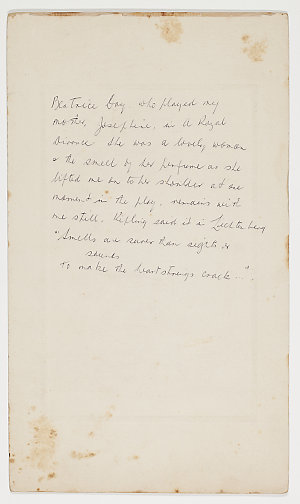 Beatrice Day who played my
mother, Josephine, in A Royal
Divorce She was a lovely woman
& the smell of her perfume as she
lifted me on to her shoulder at one
moment in the play, remains with
me still. Kipling said it in Lichtenberg
"Smells are surer than sights or
sounds
To make the heartstrings crack --".